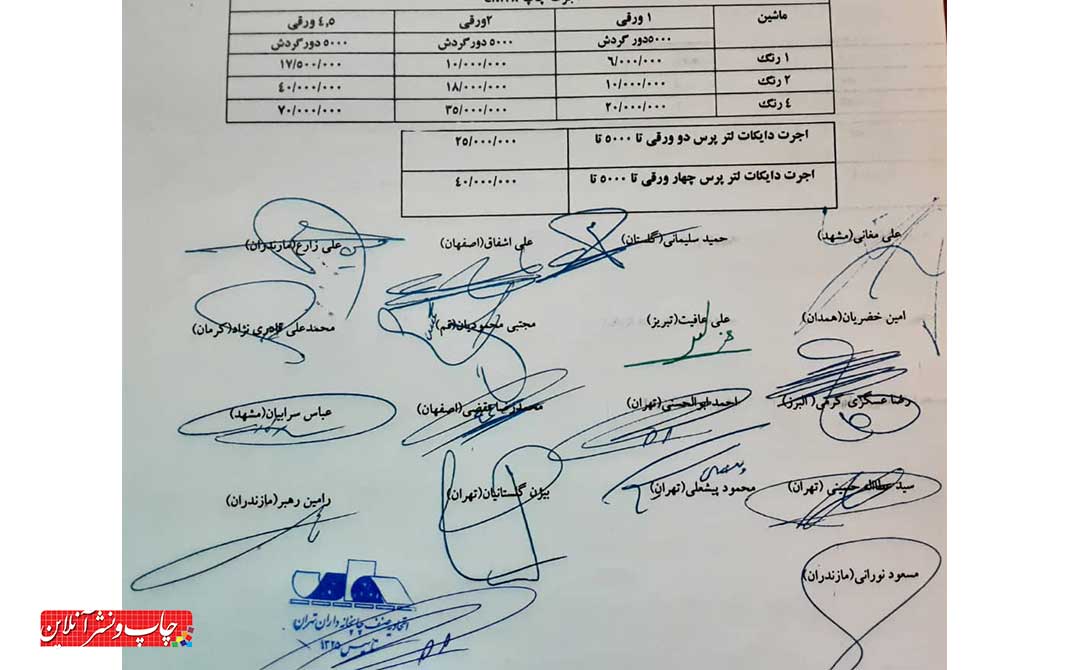 ماشین ۱ ورقی ۲ورقی ۴,۵ ورقی
۵۰۰۰دور گردش ۵۰۰۰ دور گردش ۵۰۰۰ دور گردش
۱ رنگ ۶/۰۰۰/۰۰۰ ۱۰/۰۰۰/۰۰۰ ۱۷/۵۰۰/۰۰۰
۲ رنگ ۱۰/۰۰۰/۰۰۰ ۱۸/۰۰۰/۰۰۰ ۴۰/۰۰۰/۰۰۰
۴ رنگ ۲۰/۰۰۰/۰۰۰ ۳۵/۰۰۰/۰۰۰ ۷۰/۰۰۰/۰۰۰
اجرت دایکات لتر پرس دو ورقی تا ۵۰۰۰ تا ۲۵/۰۰۰/۰۰۰
اجرت دایکات لتر پرس چهار ورقی تا ۵۰۰۰ تا ۴۰/۰۰۰/۰۰۰
علی مغانی(مشهد) حمید سلیمانی(گلستان) علی اشفاق(اصفهان) علی زارع(مازندران)
امین خضریان(همدان) علی عافیت(تبریز) مجتبی محمودیان(قم) محمدعلی قادری نژاد(کرمان)
رضا عسگری کرمی(البرز) احمد ابوالحسنی(تهران) محمدرضا (اصفهان) عباس سرابیان(مشهد)
سید عطااله حسینی (تهران) محمود پیشعلی(تهران) بیژن گلستانیان(تهران) رامین رهبر(مازندران)
مسعود نورانی(مازندران)
اتحادیه صنف چاپخانه داران تهران
تاسیس ۱۳۲۵
چاپ و نشر آنلاین